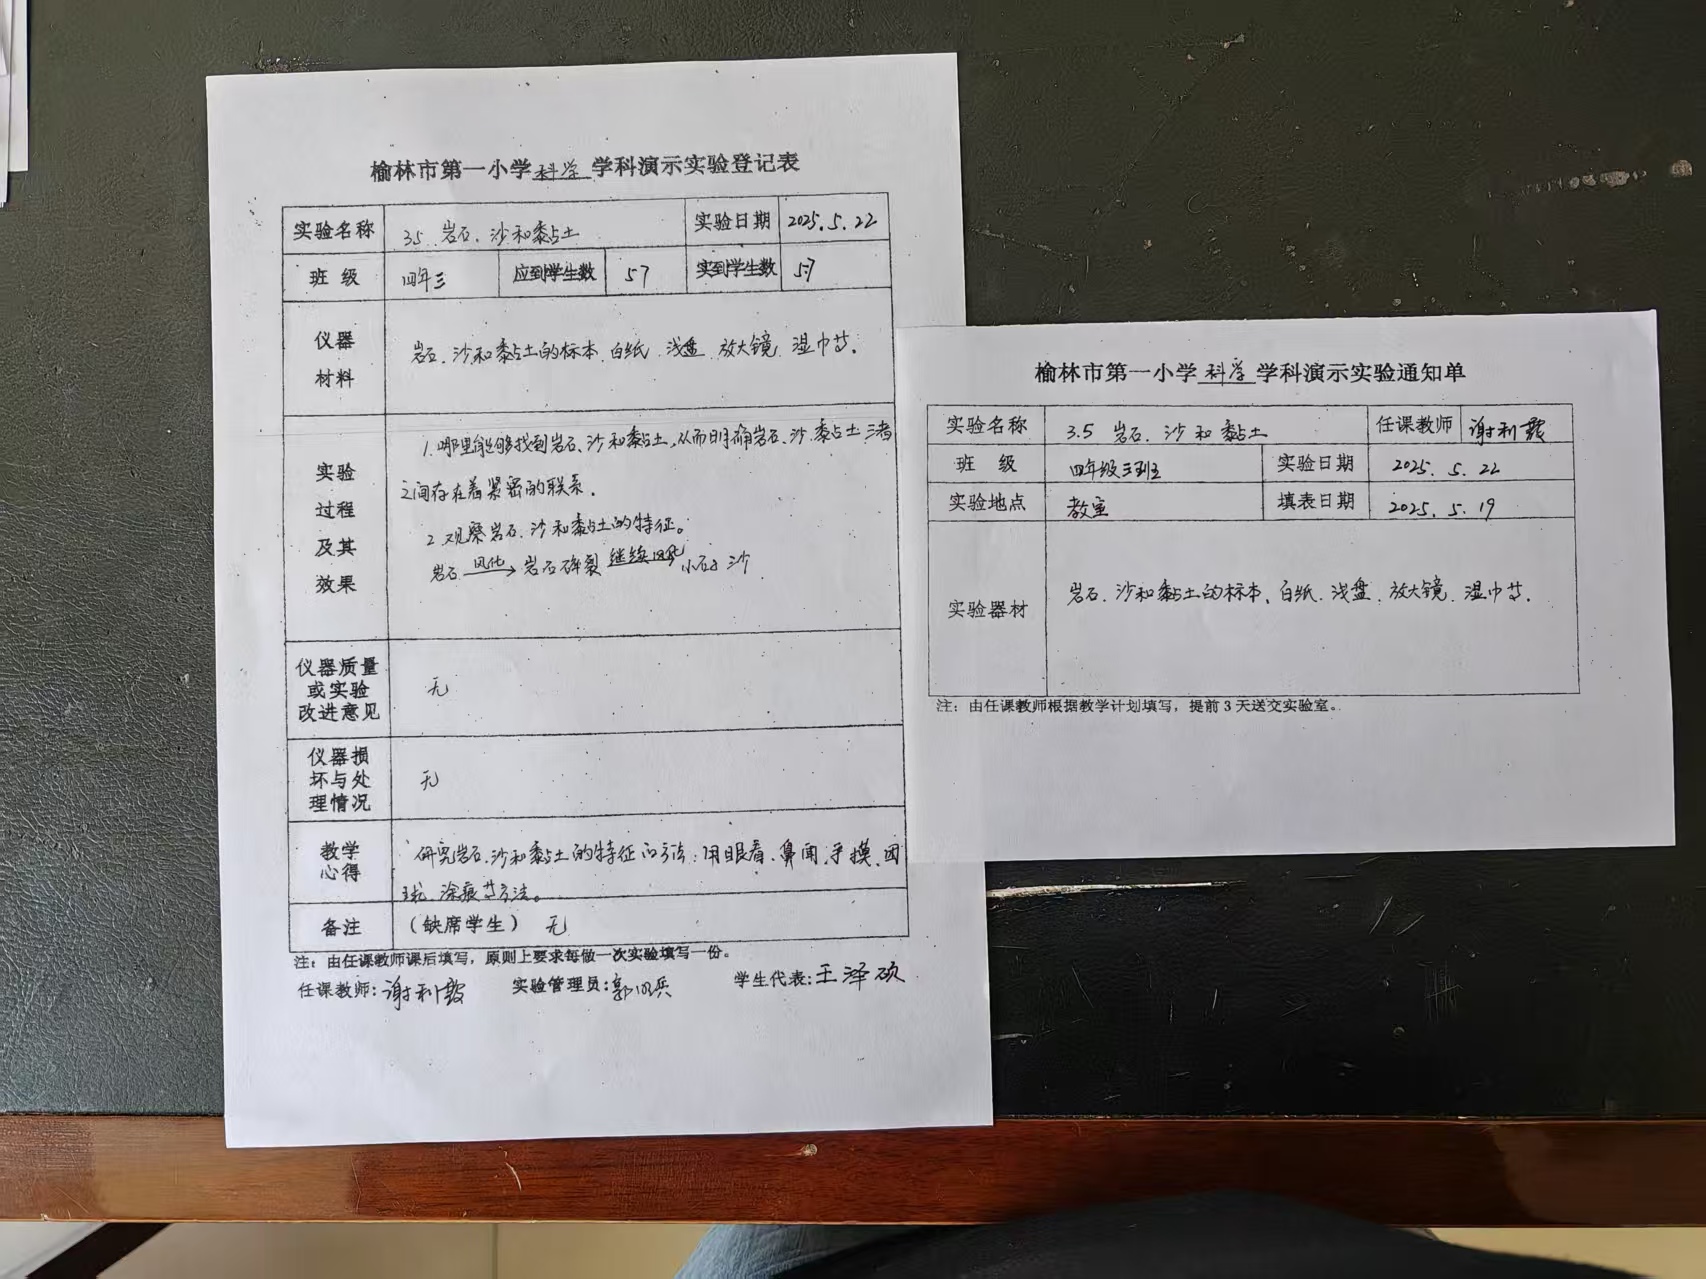 榆林市第一小学科学学科演示实验登记表
实验名称 3.5 岩石、沙和黏土 实验日期 2025.5.22
班级 四年三 应到学生数 57 实到学生数 57
仪器
材料
岩石、沙和黏土的标本、白纸、浅盘、放大镜、湿巾等.
实验
过程
及其
效果
1.哪里能够找到岩石、沙和黏土,从而明确岩石、沙、黏土三者
之间存在着紧密的联系.
2.观察岩石、沙和黏土的特征。
岩石 风化→ 岩石碎裂 继续风化 小石子 沙
仪器质量
或实验
改进意见
无
仪器损
坏与处
理情况
无
教学
心得
研究岩石、沙和黏土的特征的方法:用眼看、鼻闻、手摸、
涂痕等方法。
备注 (缺席学生) 无
注:由任课教师课后填写,原则上要求每做一次实验填写一份。
任课教师:谢利 实验管理员:郭 学生代表:王泽硕
榆林市第一小学科学学科演示实验通知单
实验名称 3.5 岩石、沙和黏土 任课教师 谢利
班级 四年级三班 实验日期 2025.5.22
实验地点 教室 填表日期 2025.5.19
实验器材 岩石、沙和黏土的标本、白纸、浅盘、放大镜、湿巾等.
注:由任课教师根据教学计划填写,提前3天送交实验室。